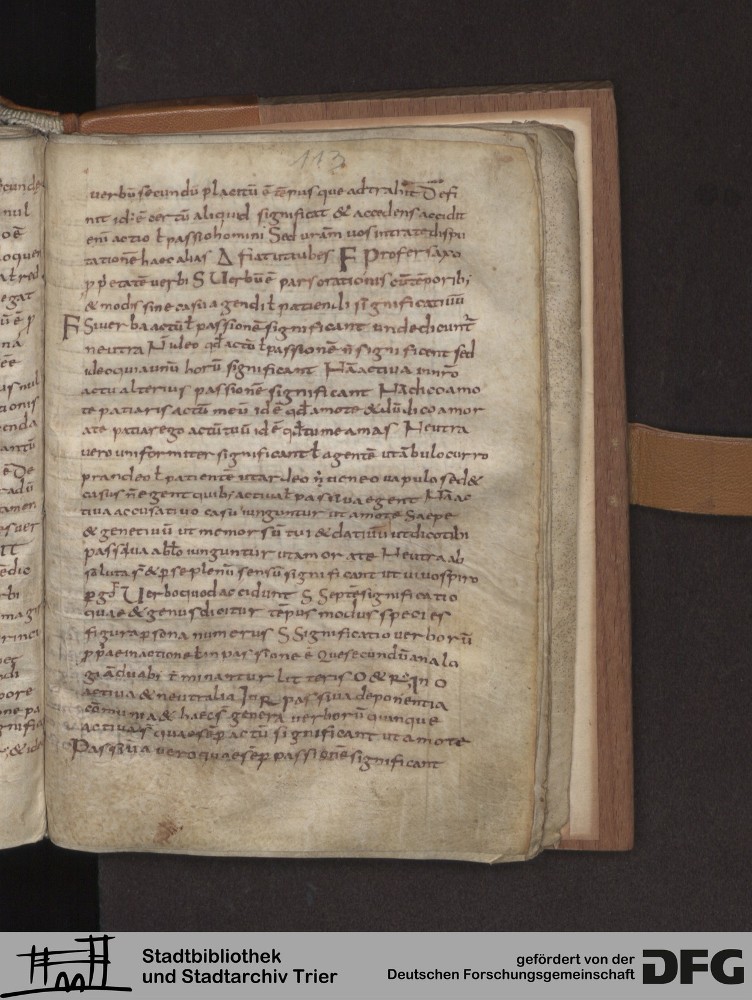 113
verbū secundū placitū ē tēpus que adtrahit Defi
nit id ē certū aliquid significat & accedens accidit
enī actio ł passio homini Sed uram vos intrate dispu
tationē haec alias Δ fiat ut iubes F Profer saxo
p̄petatē verbi S Uerbū ē pars orationis cū tēporib;
& modis sine casu agendi ł patiendi significatiuū
F Si verba actū ł passionē significant unde dicunt̄
neutra N̄ ideo qd actū ł passionē n̄ significent sed
ideo quia unū horū significant Nā activa nr̄o
actu alterius passionē significant Nā dico amo
te patiaris actū meū id ē qd amo te & dū dico amor
a te patiar ego actū tuū id ē qd tu me amas Neutra
vero uniformiter significant ł agentē ut ābulo curro
prandeo ł patientē ut ardeo n̄ ti eneo vapulo sed &
casus n̄ egent quib; activa ł passiva egent Nā ac
tiva accusativo casu iunguntur ut amo te Saepe
& genetivū ut memor sū tui & dativū ut dico tibi
passiva abło iunguntur ut amor a te Neutra ab
soluta s̄ & p se plenū sensū significant ut vivo spiro
pgo F Verbo quod accidunt S Septē significatio
quae & genus dicitur tēpus modus species
figura psona numerus S Significatio verborū
pp̄ae in actione ł in passione ē Que secundū analo
giā duab; t̄minantur litteris O & R; In O
activa & neutralia In R passiva deponentia
cōmunia & haec s̄ genera verborū quinque
activa s̄ quae sēp actū significant ut amo te
Passiva vero quae sēp passionē significant
Stadtbibliothek
und Stadtarchiv Trier
gefördert von der
Deutschen Forschungsgemeinschaft
DFG